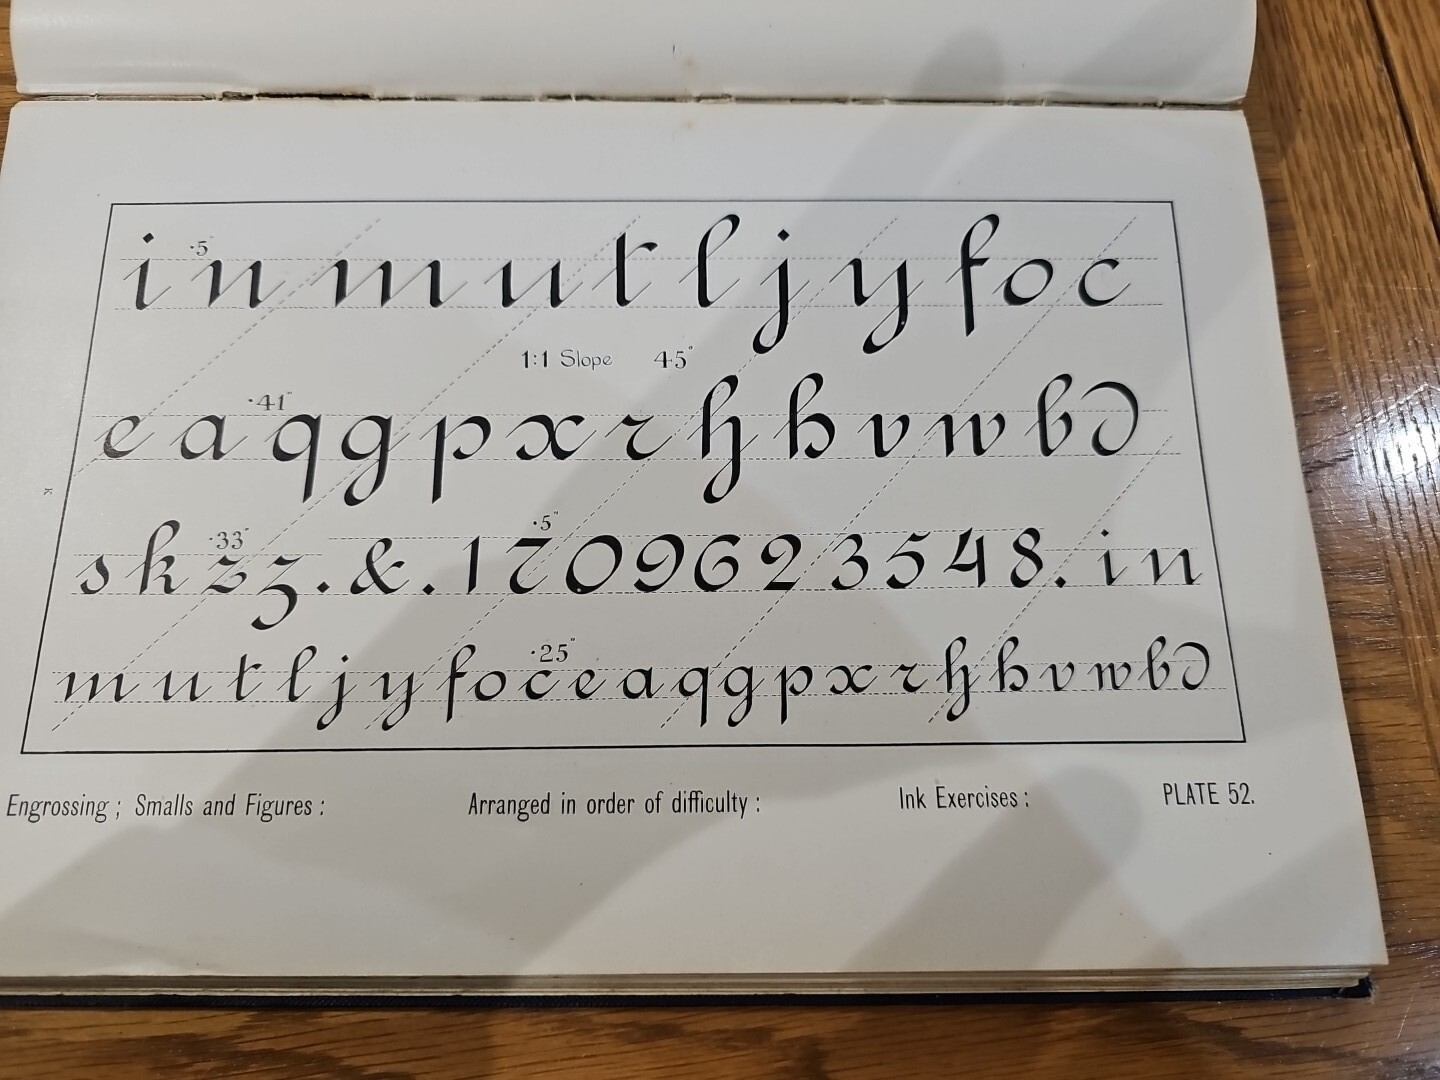 ·5"
i n m u t l j y f o c
1:1 Slope 45°
·41"
e a q g p x r h h v w b d
K
·33" ·5"
s k z z . & . 1 7 0 9 6 2 3 5 4 8 . i n
·25"
m u t l j y f o c e a q g p x r h h v w b d
Engrossing ; Smalls and Figures : Arranged in order of difficulty : Ink Exercises : PLATE 52.